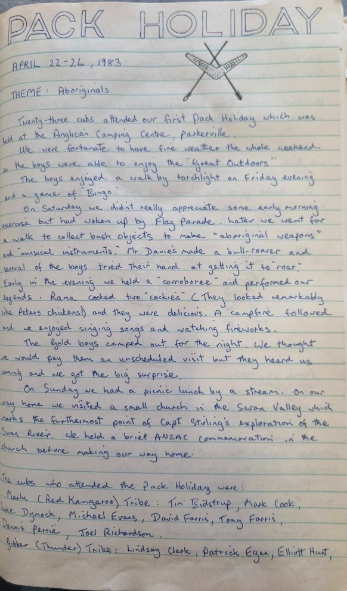 PACK HOLIDAY
APRIL 22-26, 1983
THEME: Aboriginals
Twenty-three cubs attended our first Pack Holiday which was
held at the Anglican Camping Centre, Parkerville.
We were fortunate to have fine weather the whole weekend
so the boys were able to enjoy the "Great Outdoors"
The boys enjoyed a walk by torchlight on Friday evening
and a game of Bingo.
On Saturday we didn't really appreciate some early morning
exercise but had woken up by Flag Parade. Later we went for
a walk to collect bush objects to make "aboriginal weapons"
and musical instruments. Mr Davies made a bull-roarer and
several of the boys tried their hand at getting it to "roar"
Early in the evening we held a "corroboree" and performed our
legends. Rana cooked two "cockies" (They looked remarkably
like Peters chickens) and they were delicious. A campfire followed
and we enjoyed singing songs and watching fireworks.
The Gold boys camped out for the night. We thought
we would pay them an unscheduled visit but they heard us
coming and we got the big surprise.
On Sunday we had a picnic lunch by a stream. On our
way home we visited a small church in the Swan Valley which
marks the furthermost point of Capt Stirling's exploration of the
Swan River. We held a brief ANZAC commemoration in the
church before making our way home.
The cubs who attended the Pack Holiday were:
(Red Kangaroo) Tribe: Tim Bidstrup, Mark Cook,
Dymock, Michael Evans, David Farris, Tony Farris,
Dennis Perrie, Joel Richardson.
(Thunder) Tribe: Lindsay Clark, Patrick Egan, Elliott Hunt,